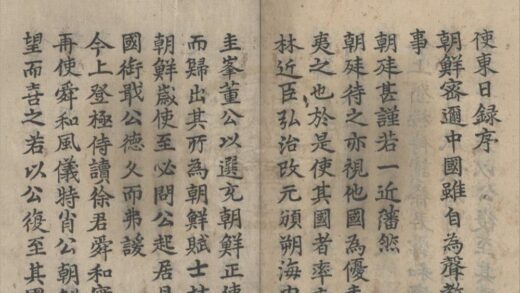 使東日録序
朝鮮密邇中國雖自為聲教
事
朝廷甚謹若一近藩然
朝廷待之亦視他國為優
夷之也於是使其國者率
林近臣弘治改元頒朔海
圭峯董公以選充朝鮮正使
而歸出其所為朝鮮賦士
朝鮮歲使至必問公起居
國銜戢公德久而弗諼
今上登極侍讀徐君舜和
再使舜和風儀特肖公朝
望而喜之若以公復至其